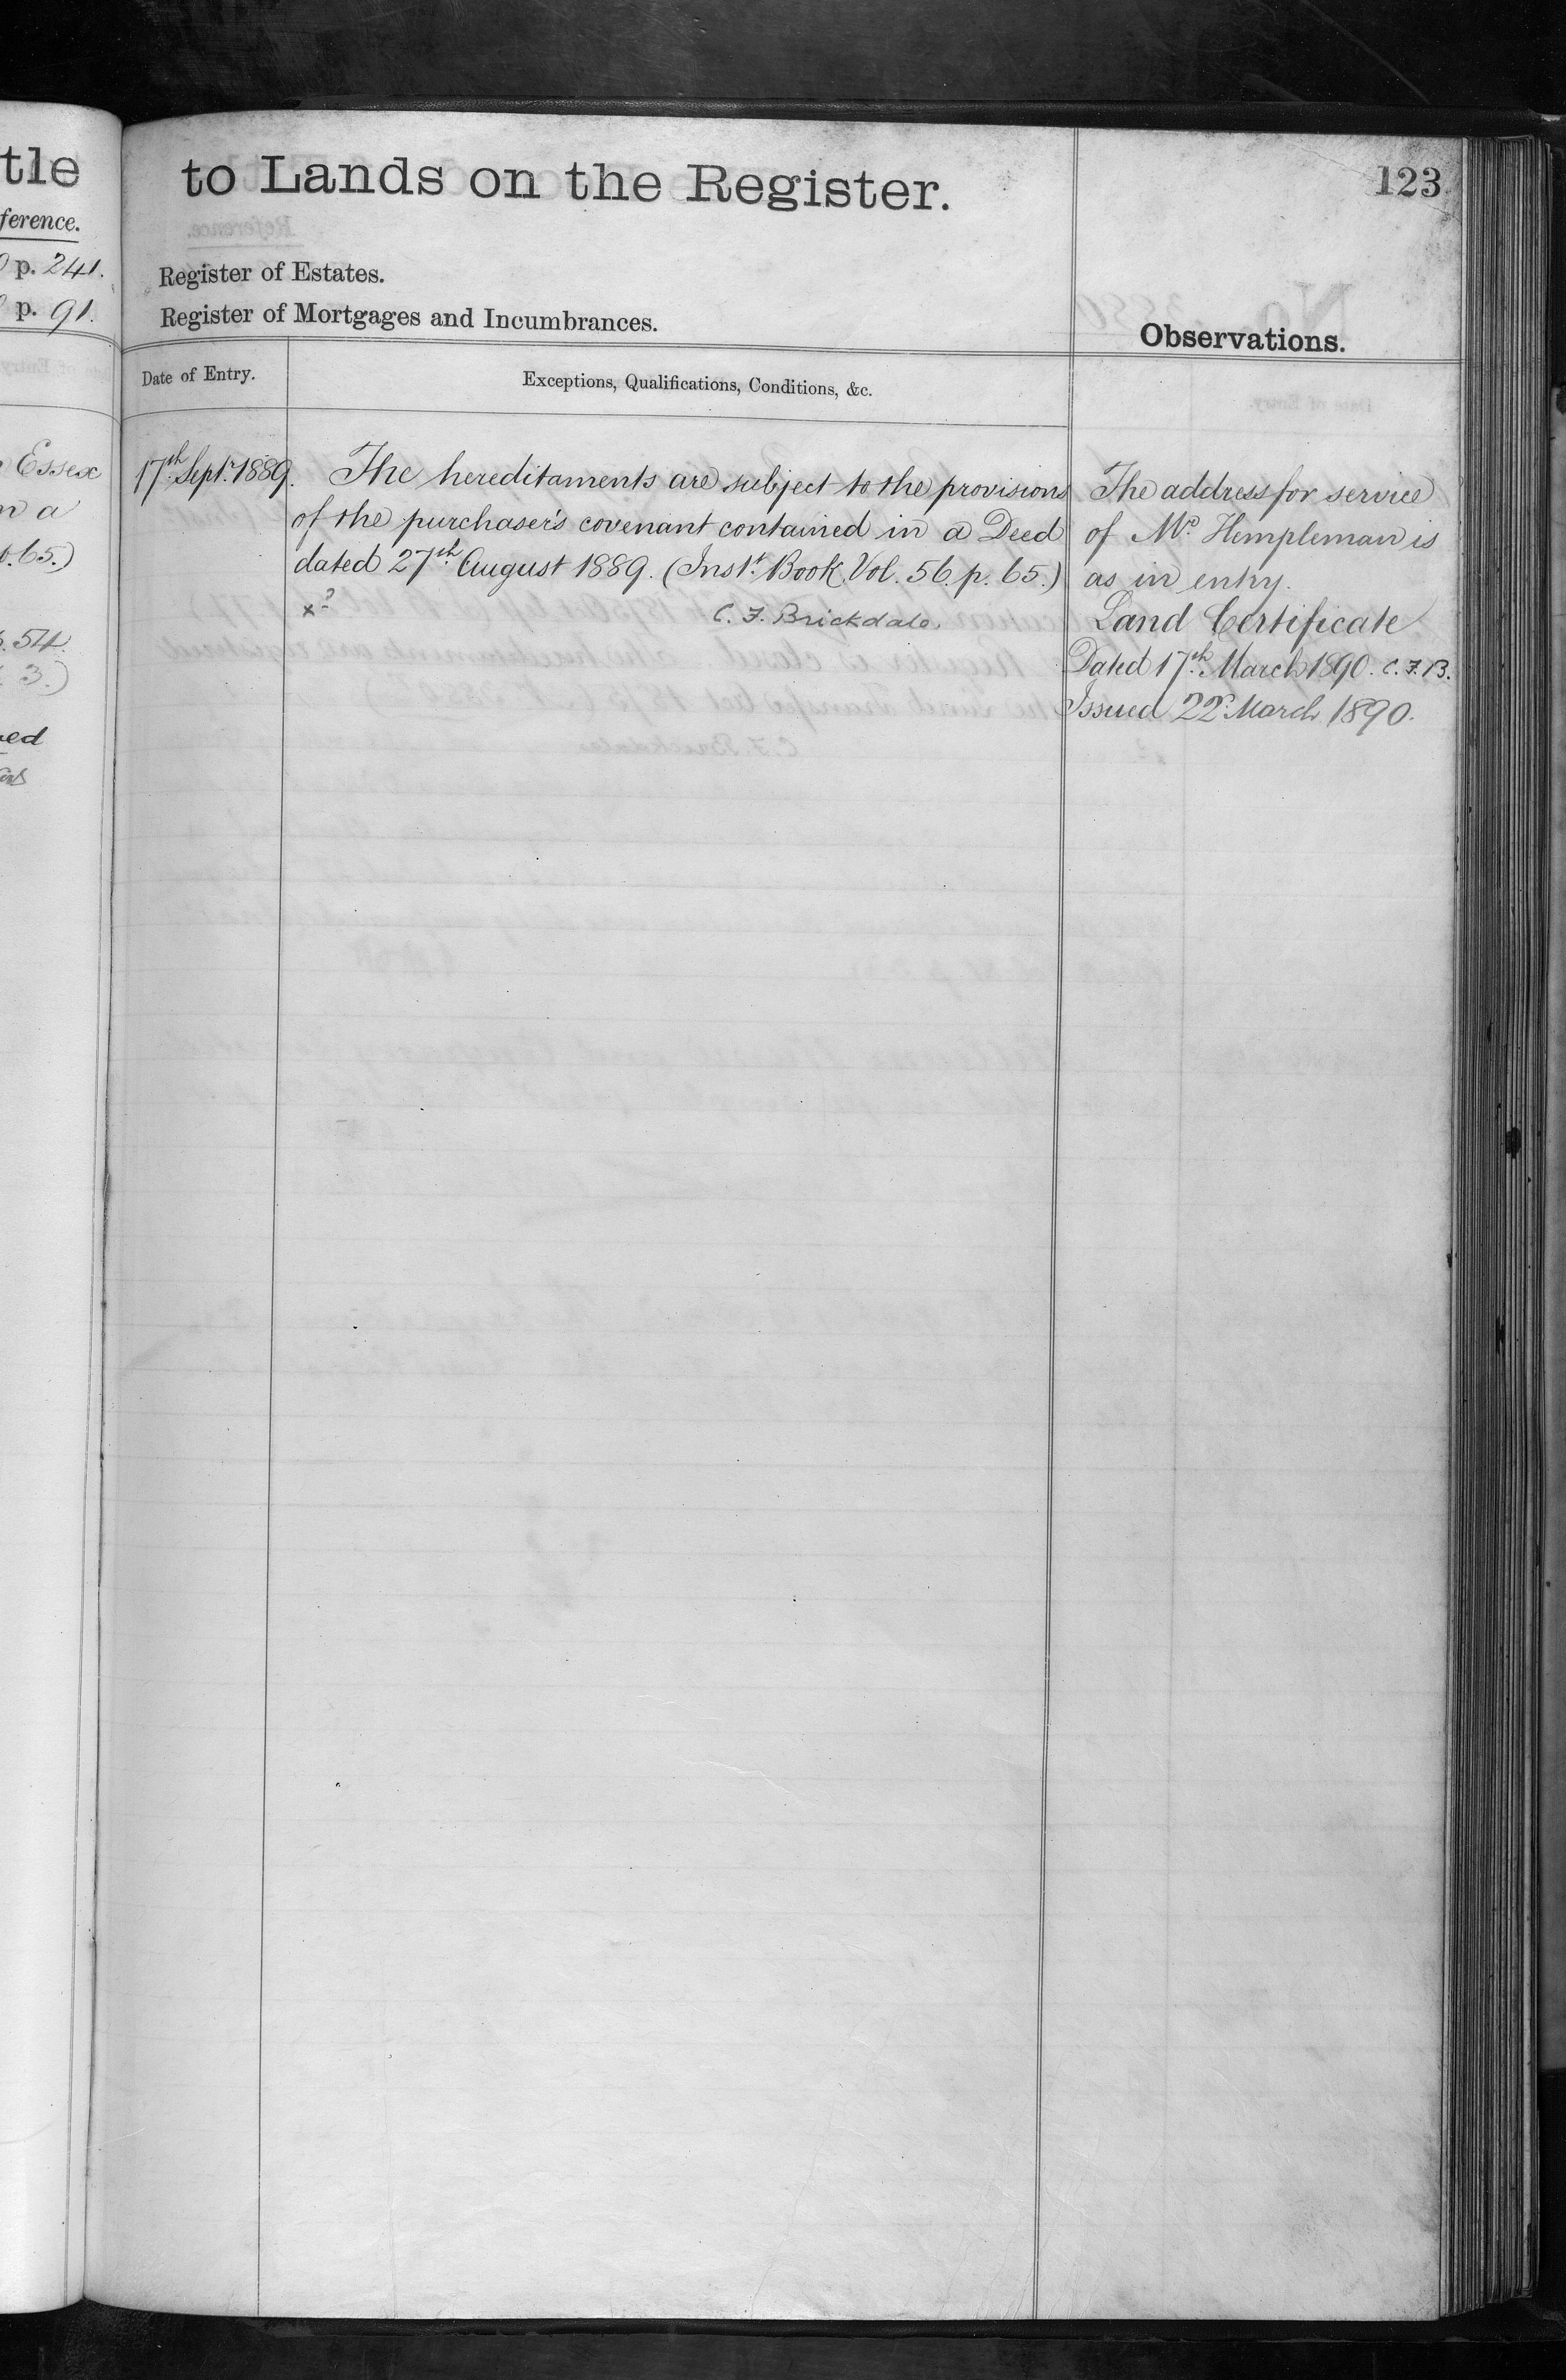 tle
ference.
p. 241.
p. 91.
Essex
n a
.65.)
.54.
3.)
ed
to Lands on the Register.
123
Register of Estates.
Register of Mortgages and Incumbrances.
Observations.
Date of Entry.
Exceptions, Qualifications, Conditions, &c.
17th Septr. 1889.
The hereditaments are subject to the provisions
of the purchaser's covenant contained in a Deed
dated 27th August 1889. (Inst. Book Vol. 56. p. 65.)
C. F. Brickdale.
The address for service
of Mr. Hempleman is
as in entry.
Land Certificate
Dated 17th March 1890. C. F. B.
Issued 22d March 1890.